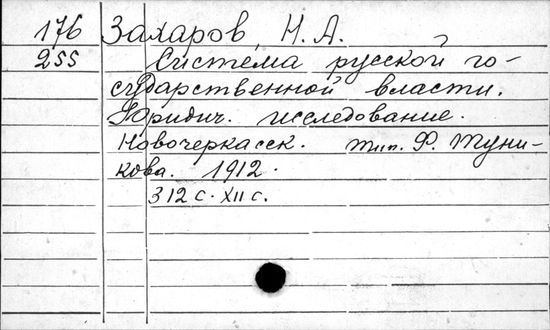 176 Захаров, Н. А.
255 Система русской го-
сударственной власти.
Юридич. исследование.
Новочеркасск. тип. Ф. Туни-
кова. 1912.
312 с. XII с.